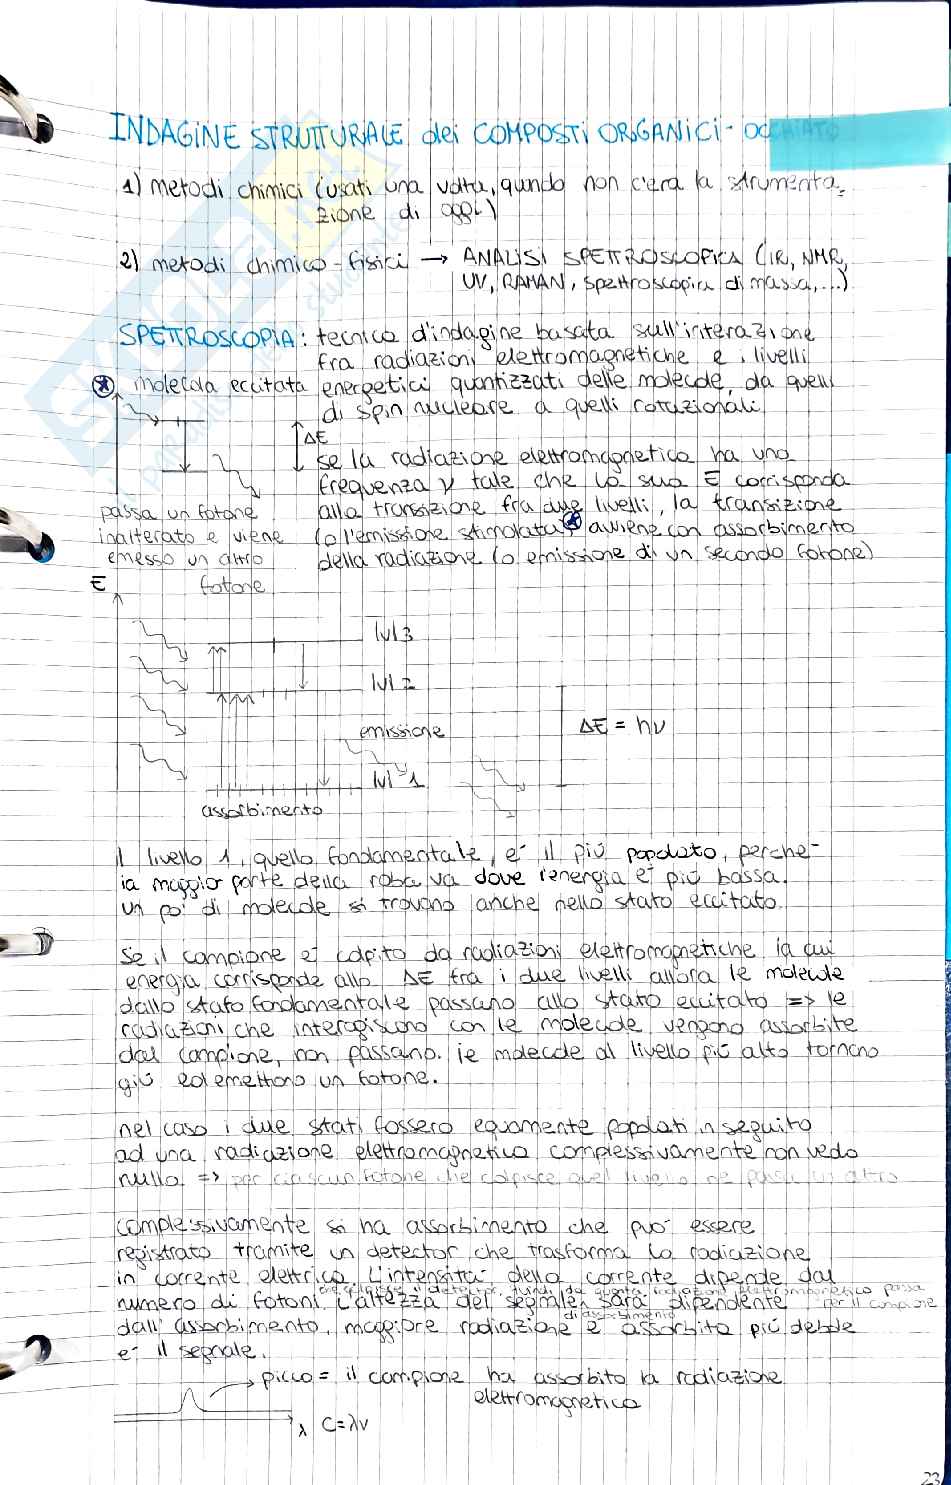 INDAGINE STRUTTURALE dei COMPOSTI ORGANICI - OCCHIATO
1) metodi chimici (usati una volta, quando non c'era la strumenta-
zione di oggi)
2) metodi chimico-fisici → ANALISI SPETTROSCOPICA (IR, NMR,
UV, RAMAN, spettroscopia di massa,...)
SPETTROSCOPIA: tecnica d'indagine basata sull'interazione
fra radiazioni elettromagnetiche e i livelli
energetici quantizzati delle molecole, da quelli
di spin nucleare a quelli rotazionali
molecola eccitata
ΔE
se la radiazione elettromagnetica ha una
frequenza ν tale che la sua E corrisponda
alla transizione fra due livelli, la transizione
(o l'emissione stimolata) avviene con assorbimento
della radiazione (o emissione di un secondo fotone)
passa un fotone
inalterato e viene
emesso un altro
fotone
E
lvl 3
lvl 2
emissione
lvl 1
assorbimento
ΔE = hν
il livello 1, quello fondamentale, è il più popolato, perchè
la maggior parte della roba va dove l'energia è più bassa.
un po' di molecole si trovano anche nello stato eccitato.
Se il campione è colpito da radiazioni elettromagnetiche la cui
energia corrisponde allo ΔE fra i due livelli allora le molecole
dallo stato fondamentale passano allo stato eccitato => le
radiazioni che interagiscono con le molecole vengono assorbite
dal campione, non passano. le molecole al livello più alto tornano
giù ed emettono un fotone.
nel caso i due stati fossero equamente popolati in seguito
ad una radiazione elettromagnetica complessivamente non vedo
nulla => per ciascun fotone che colpisce quel livello ne passa un altro
complessivamente si ha assorbimento che può essere
registrato tramite un detector che trasforma la radiazione
in corrente elettrica. L'intensità della corrente dipende dal
che colpisce il detector, quindi da quanta radiazione elettromagnetica passa
per il campione
numero di fotoni. L'altezza del segnale sarà dipendente
di assorbimento
dall'assorbimento, maggiore radiazione è assorbita più debole
è il segnale.
picco = il campione ha assorbito la radiazione
elettromagnetica
λ C=λν
23